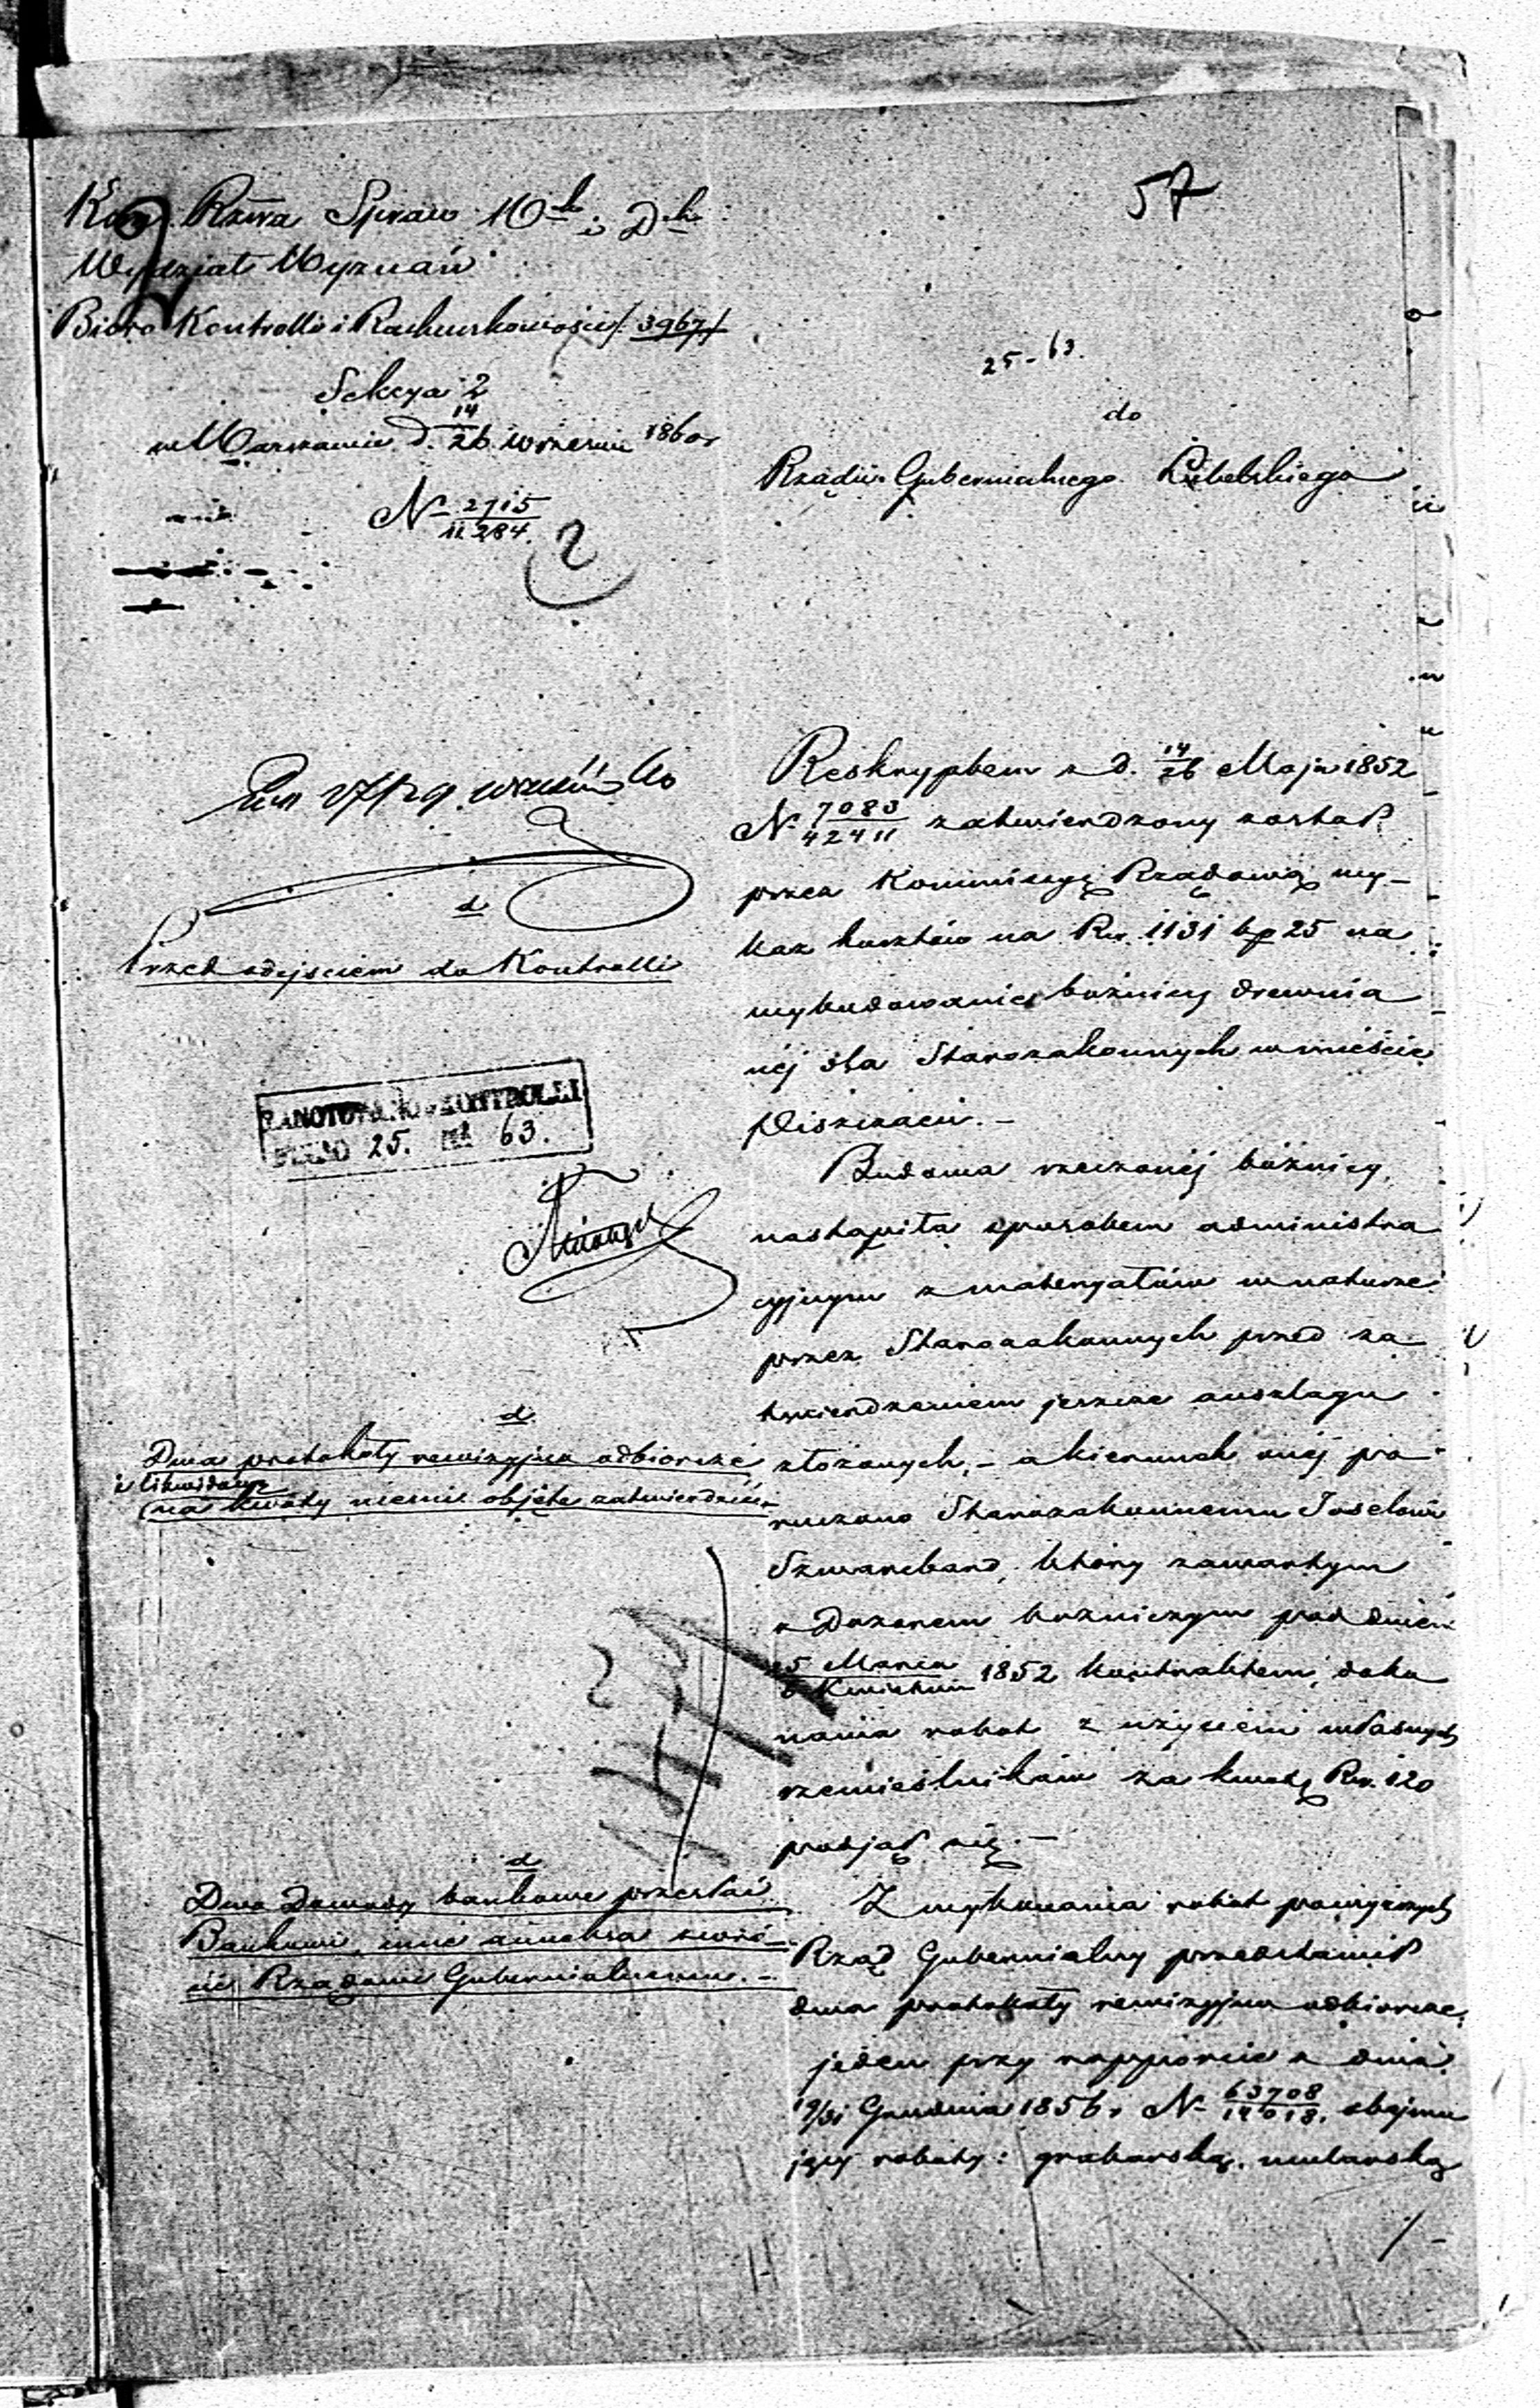 57
Kom. Rzwa Spraw Wch i Dch
Wydział Wyznań
Biuro Kontrolli i Rachunkowości /3967/
Sekcya 2
w Warszawie d. 14/26 Wrześnie 1860r
N 2715/11284.
2
25-63.
do
Rządu Gubernialnego Lubelskiego
d
Przed odejściem do Kontrolli
ZANOTOWANO w KONTROLLI
25. 63.
d
Dwa protokóły rewizyjne odbiorcze
i likwidacye
na kwoty niemi objęte
d
Dwa Dowody bankowe przesłać
Bankowi, inne annexa zwró-
cić Rządowi Gubernialnemu. -
Reskryptem z d. 14/26 Maja 1852
N. 7083/42411 zatwierdzony został
przez Kommissyę Rządową wy-
kaz kosztów na Rsr. 1131 kp 25 na
wybudowanie bóżnicy drewnia
néj dla Starozakonnych w mieście
Piszczacu. -
Budowa rzeczonéj bóżnicy,
nastąpiła sposobem administra
cyjnym z materyałów w naturze
przez Starozakonnych przed za
twierdzeniem jeszcze anszlagu
złożonych, - a kierunek onéj po
ruczono Starozakonnemu Joselowi
Szwarcband, który zawartym
z Dozorem bóżniczym pod dniem
Marca/Kwietnia 1852 kontraktem, doko
nania robot z użyciem własnych
rzemieślników za kwotę Rsr. 120
podjął się. -
Z wykonania robot powyższych
Rząd Gubernialny przedstawił
dwa protokóły rewizyjne odbiorcze,
jeden przy rapporcie z dnia
19/31 Grudnia 1856 r N 63708/14018, obejmu
jący roboty: grabarską, mularską